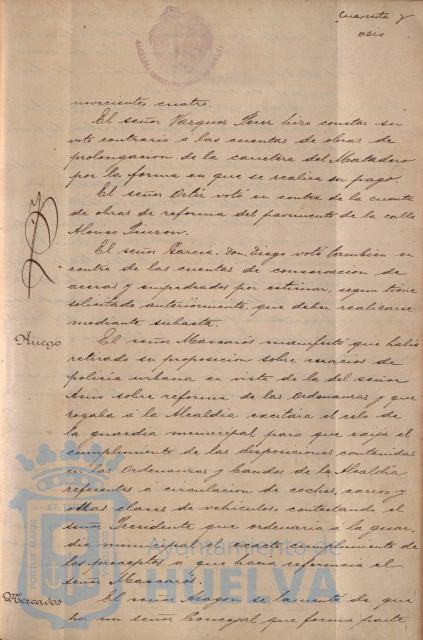 Cuarenta y
seis
novecientos cuatro.
El señor Vazquez Perez hizo constar su
voto contrario á las cuentas de obras de
prolongacion de la carretera del Matadero
por la forma en que se realiza su pago.
El señor Ortiz votó en contra de la cuenta
de obras de reforma del pavimento de la calle
Alonso Pinzon.
El señor Garcia Don Diego votó tambien en
contra de las cuentas de conservacion de
aceras y empedrados por estimar, segun tiene
solicitado anteriormente, que deben realizarse
mediante subasta.
Ruego
El señor Mascarós manifestó que habia
retirado su proposicion sobre servicios de
policia urbana en vista de la del señor
sobre reforma de las Ordenanzas y que
rogaba á la Alcaldia excitára el celo de
la guardia municipal para que exija el
cumplimiento de las disposiciones contenidas
en las Ordenanzas y bandos de la Alcaldia
referentes á circulacion de coches, carros y
otras clases de vehiculos, contestando el
señor Presidente que ordenaria á la guar-
dia municipal el exacto cumplimiento de
los preceptos á que hacia referencia el
señor Mascarós.
Mercados
El señor Aragon se lamentó de que
hay un señor Concejal que forma parte
PORTUS
Ayuntamiento de
HUELVA